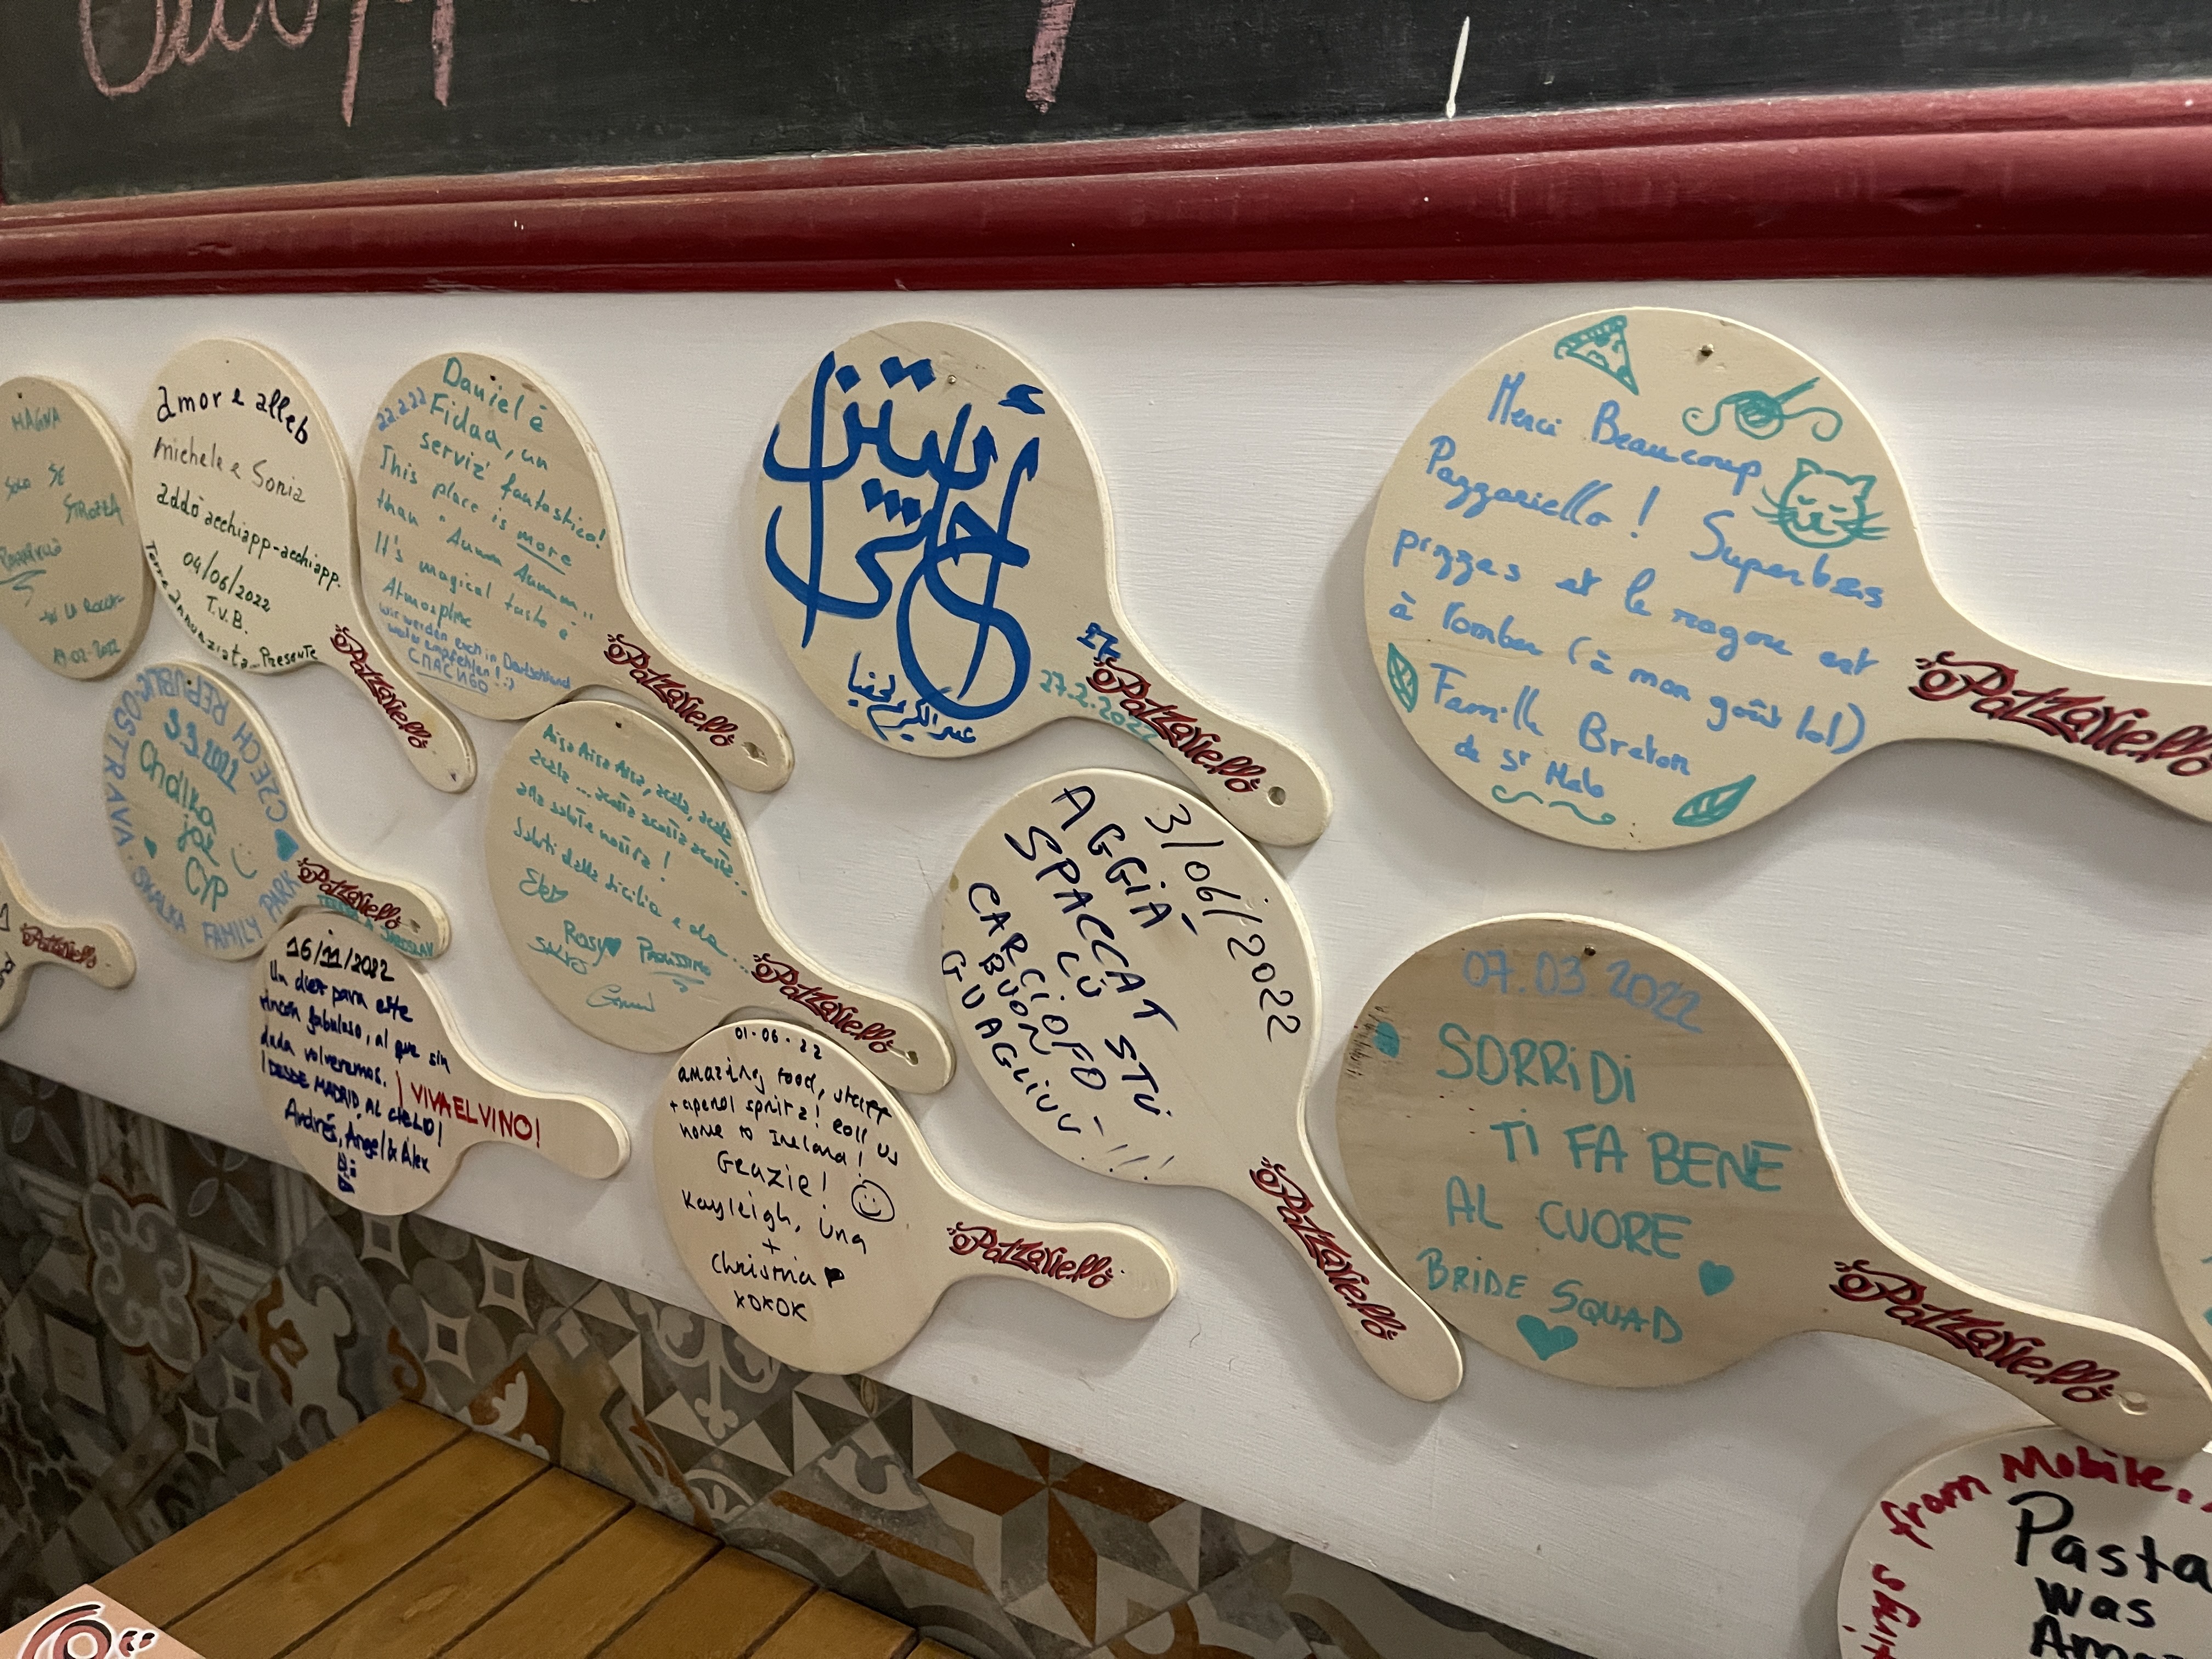 MAGNA
STROZZA
19.02.2022
amor e alleb
michele e Sonia
addò acchiapp-acchiapp.
04/06/2022
T.V.B.
Torre Annunziata Presente
'o Pazzariello
22.2.22
Daniel è
Fidaa, un
serviz' fantastico!
This place is more
than "Aumm Aumm"
It's magical taste è
Atmosphe
wir werden euch in Deutschland
weiter empfehlen! :)
СПАСИБО
'o Pazzariello
27
27.2.2022
'o Pazzariello
Merci Beaucoup
Pazzariello! Superbes
pizzas et le ragou est
à tomber (à mon goût lol)
Famille Breton
de St Malo
'o Pazzariello
CZECH REPUBLIC OSTRAVA · SKALKA FAMILY PARK
3.3.2022
JAROSLAV
'o Pazzariello
'o Pazzariello
Aisa Aisa Aisa, acala, acala
acala ... acosta acosta acosta..
alla salute nostra!
Saluti dalla Sicilia e da...
Rosy
Salvo
'o Pazzariello
3/06/2022
AGGIÀ
SPACCAT STU
CARCIOFO
BUON
GUAGLIUÙ!!!
'o Pazzariello
07.03 2022
SORRIDI
TI FA BENE
AL CUORE
BRIDE SQUAD
'o Pazzariello
16/11/2022
Un diez para este
rincón fabuloso, al que sin
duda volveremos.
¡DESDE MADRID, AL CIELO!
¡VIVA EL VINO!
Andrés, Ángel & Álex
01-06-22
amazing food, staff
+ aperol spritz! Roll us
home to Ireland!
Grazie!
Kayleigh, Una
+
Christina
XOXOX
'o Pazzariello
from Mobile..
Pasta
was